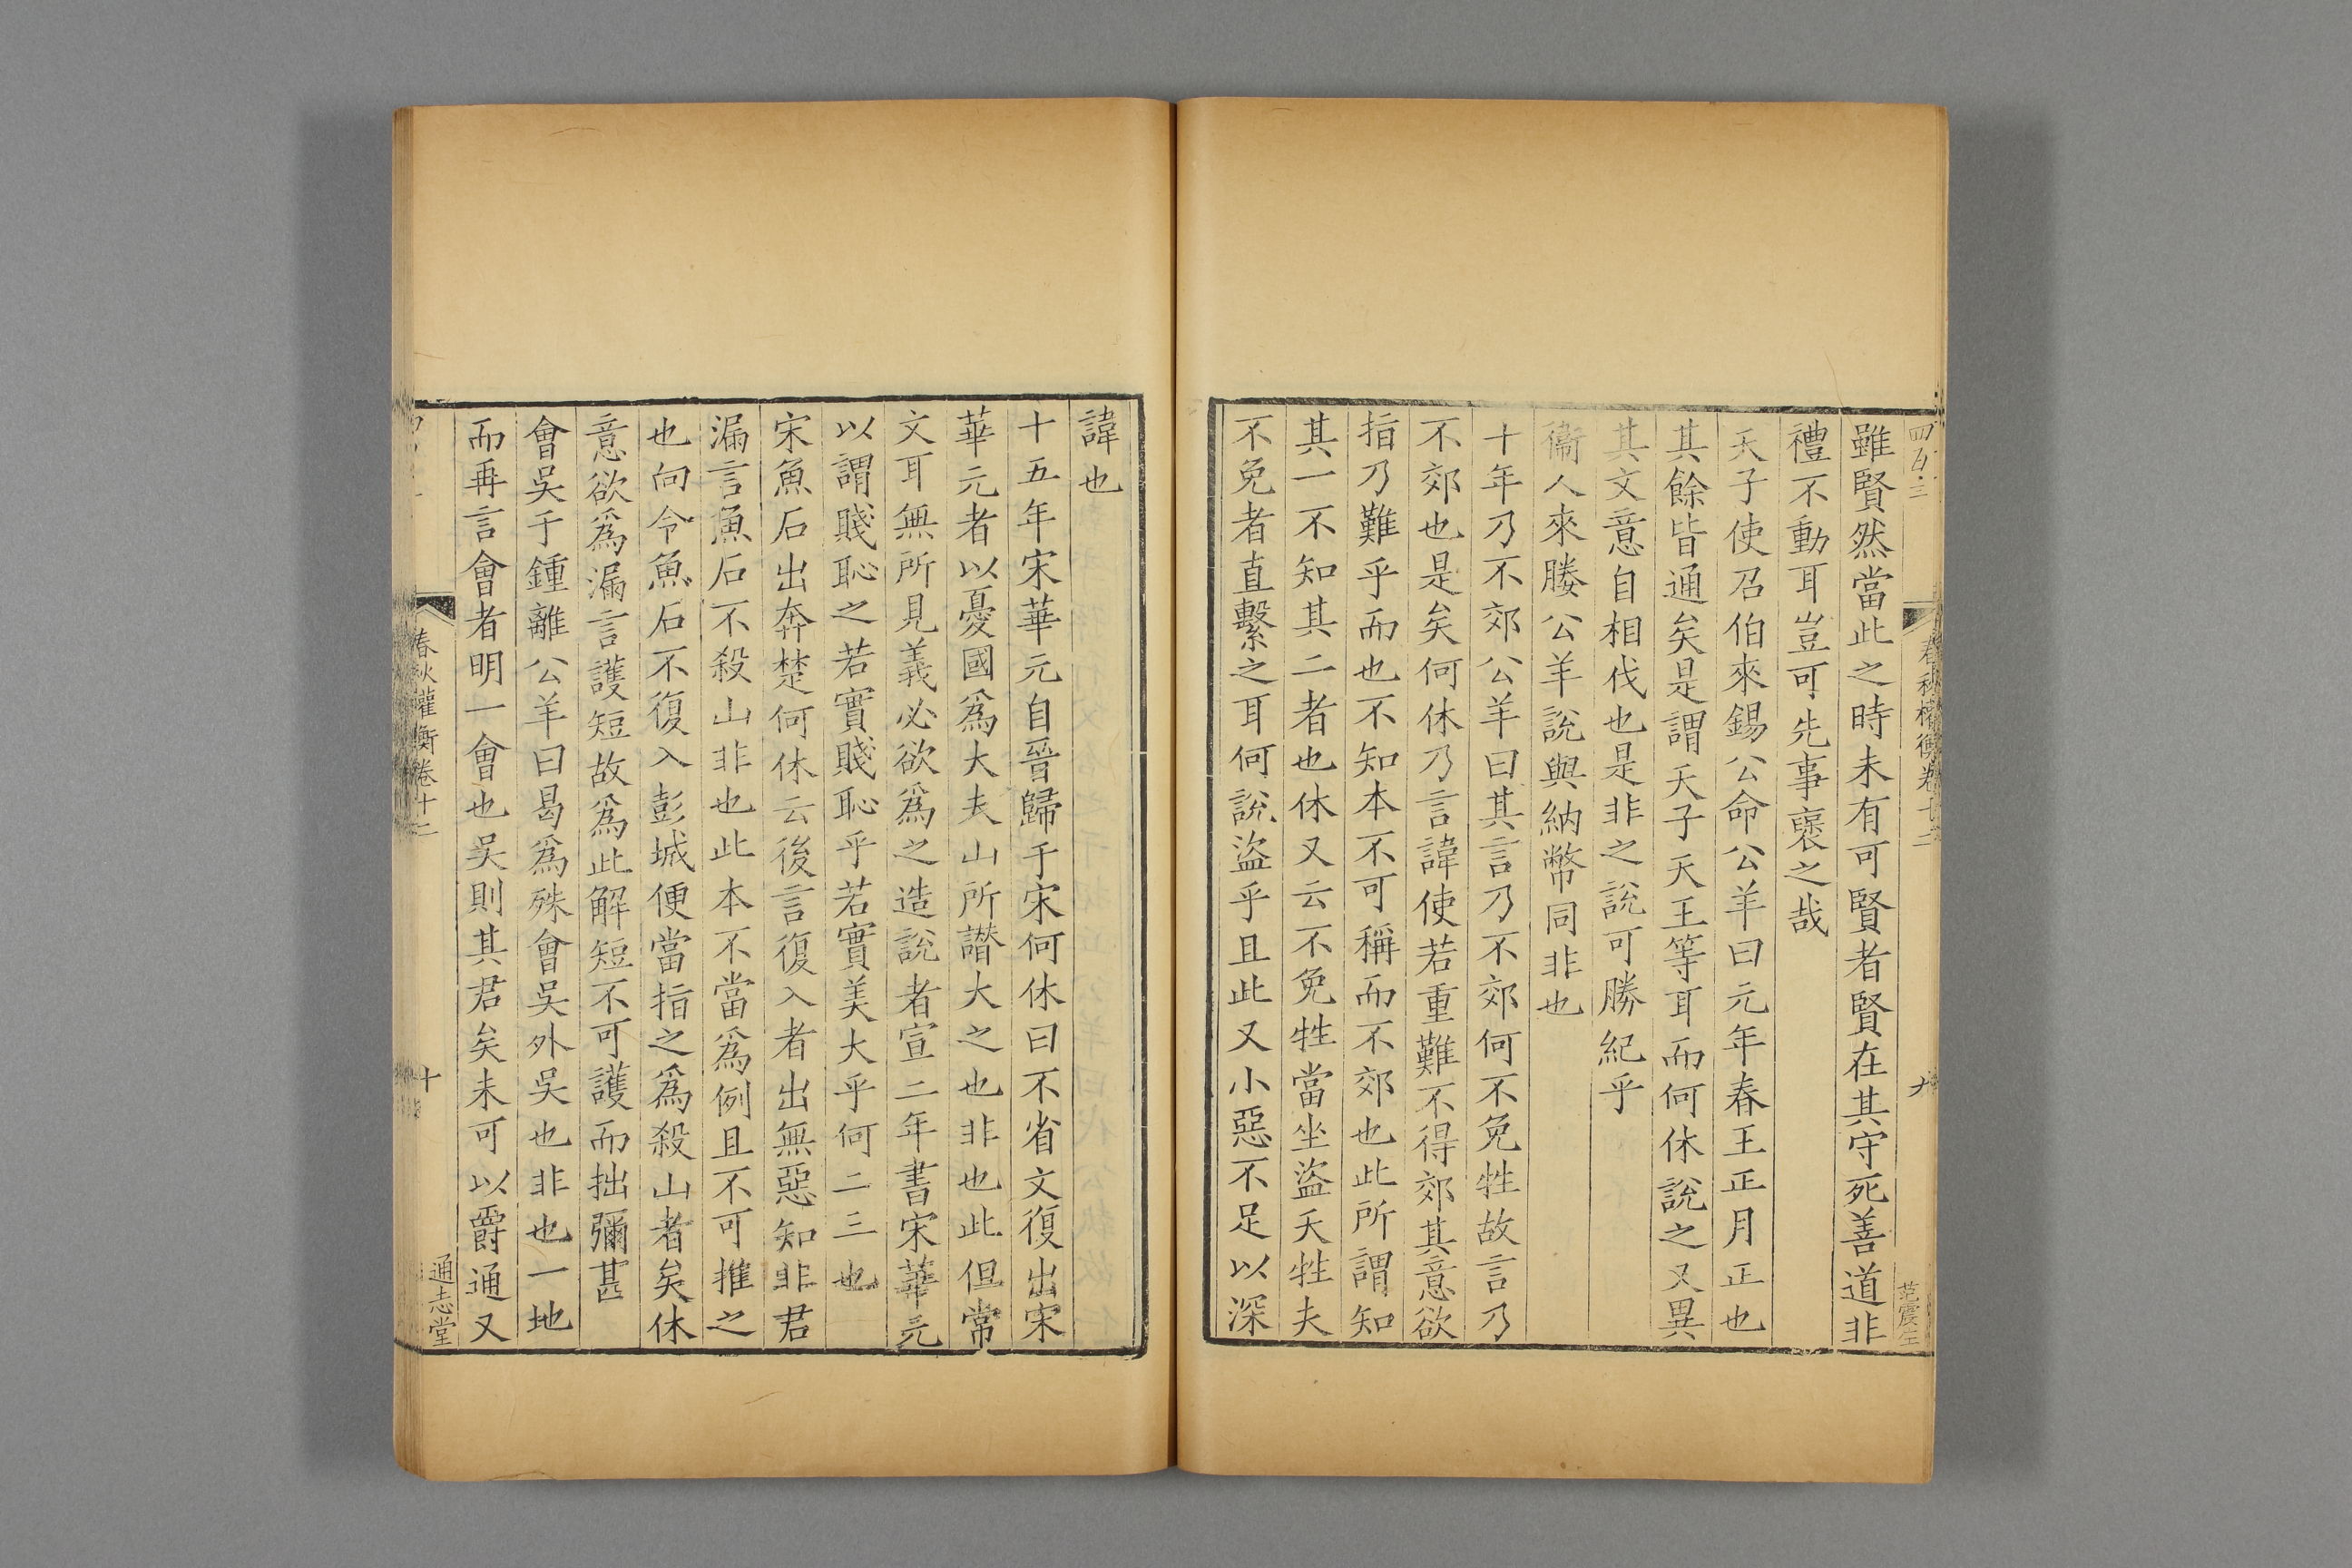 四百三
春秋權衡卷十二
九
范震生
雖賢然當此之時未有可賢者賢在其守死善道非
禮不動耳豈可先事襃之哉
天子使召伯來錫公命公羊曰元年春王正月正也
其餘皆通矣是謂天子天王等耳而何休說之又異
其文意自相伐也是非之說可勝紀乎
衞人來媵公羊說與納幣同非也
十年乃不郊公羊曰其言乃不郊何不免牲故言乃
不郊也是矣何休乃言諱使若重難不得郊其意欲
指乃難乎而也不知本不可稱而不郊也此所謂知
其一不知其二者也休又云不免牲當坐盜天牲夫
不免者直繫之耳何說盜乎且此又小惡不足以深
諱也
十五年宋華元自晉歸于宋何休曰不省文復出宋
華元者以憂國爲大夫山所譖大之也非也此但常
文耳無所見義必欲爲之造說者宣二年書宋華元
以謂賤恥之若實賤恥乎若實美大乎何二三也
宋魚石出奔楚何休云後言復入者出無惡知非君
漏言魚石不殺山非也此本不當爲例且不可推之
也向令魚石不復入彭城便當指之爲殺山者矣休
意欲爲漏言護短故爲此解短不可護而拙彌甚
會吳于鍾離公羊曰曷爲殊會吳外吳也非也一地
而再言會者明一會也吳則其君矣未可以爵通又
春秋權衡卷十二
十
通志堂